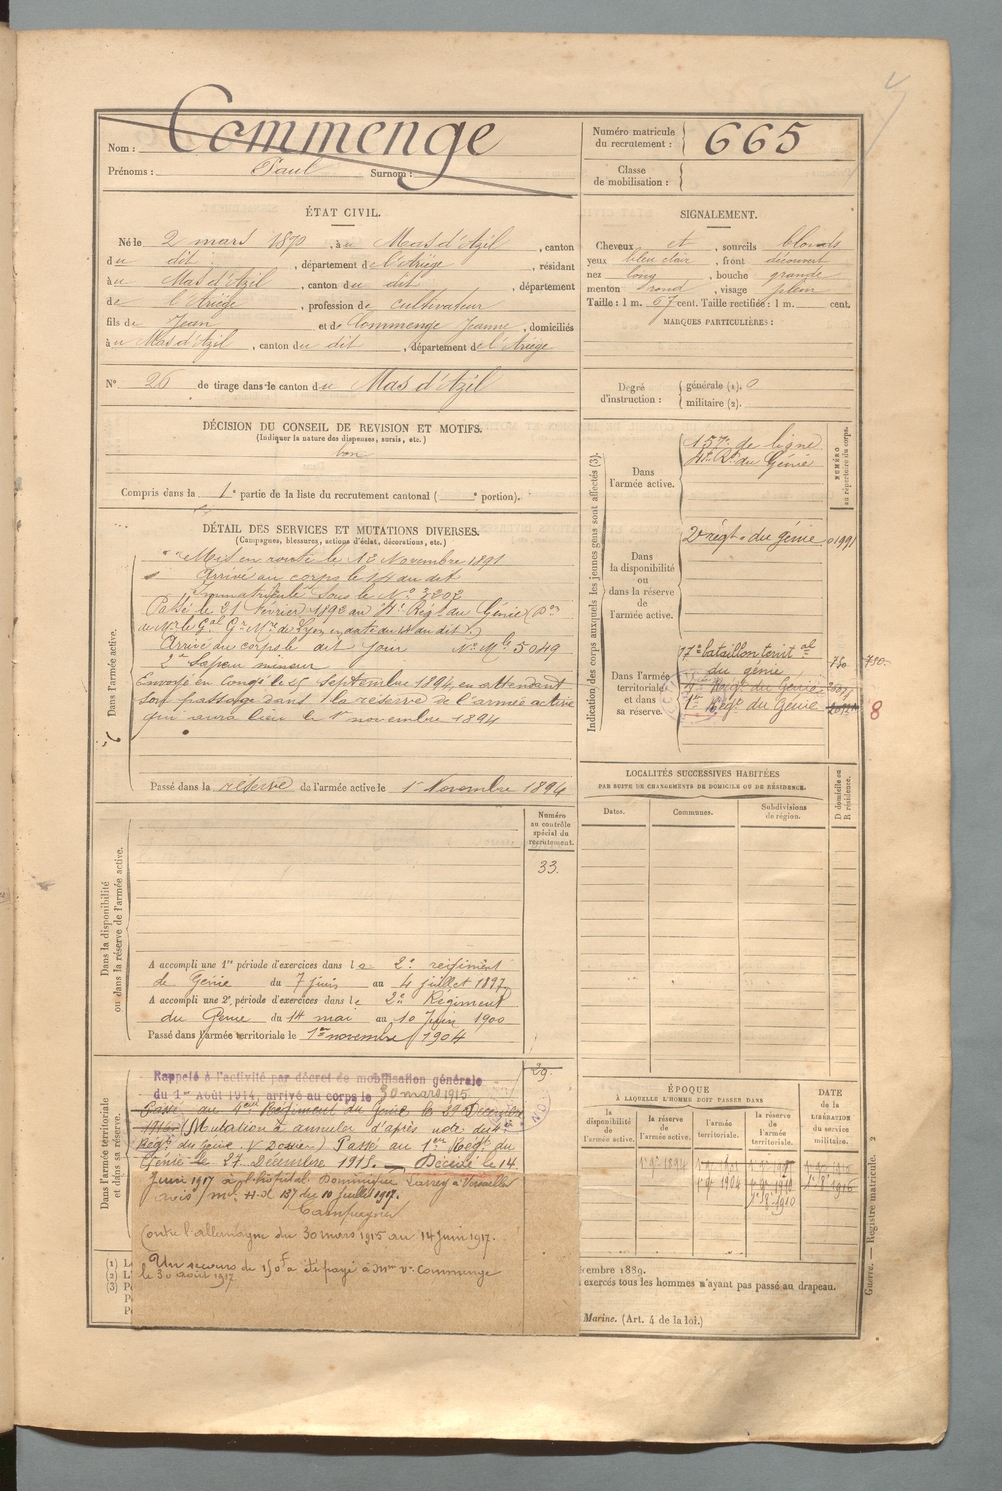 Nom : Commenge
Prénoms : Paul Surnom :
Numéro matricule du recrutement : 665
Classe de mobilisation :
ÉTAT CIVIL.
Né le 2 mars 1870, à u Mas d'Azil, canton
du dit, département de l'Ariège, résidant
à u Mas d'Azil, canton du dit, département
de l'Ariège, profession de cultivateur
fils de Jean et de Commenge Jeanne, domiciliés
à u Mas d'Azil, canton du dit, département de l'Ariège
N° 26 de tirage dans le canton du Mas d'Azil
SIGNALEMENT.
Cheveux et, sourcils blonds
yeux bleu clair, front découvert
nez long, bouche grande
menton rond, visage plein
Taille : 1 m. 67 cent. Taille rectifiée : 1 m. cent.
MARQUES PARTICULIÈRES :
Degré d'instruction : générale (1). 0
militaire (2).
DÉCISION DU CONSEIL DE REVISION ET MOTIFS.
(Indiquer la nature des dispenses, sursis, etc.)
bon
Compris dans la 1e partie de la liste du recrutement cantonal ( e portion).
DÉTAIL DES SERVICES ET MUTATIONS DIVERSES.
(Campagnes, blessures, actions d'éclat, décorations, etc.)
Dans l'armée active.
Mis en route le 12 Novembre 1891
Arrivé au corps le 14 au dit
Immatriculé sous le N° 3202
Passé le 21 février 1892 au 4e Régt du Génie (Don
de Mr le Gal Gr Mre de Lyon en date du 18 au dit.)
Arrivé au corps le dit jour N° Mle 5049
2e Sapeur mineur
Envoyé en Congé le 15 Septembre 1894, en attendant
son passage dans la réserve de l'armée active
qui aura lieu le 1er novembre 1894
Passé dans la réserve de l'armée active le 1er Novembre 1894
Indication des corps auxquels les jeunes gens sont affectés (3).
NUMÉRO au répertoire du corps.
Dans l'armée active.
157e de ligne
4e Rt du Génie
Dans la disponibilité ou dans la réserve de l'armée active.
2e régt. du génie 01991
Dans l'armée territoriale et dans sa réserve.
17e bataillon territal 750 750
du génie
4e Régt du Génie
1er Régt du Génie 8
LOCALITÉS SUCCESSIVES HABITÉES
PAR SUITE DE CHANGEMENTS DE DOMICILE OU DE RÉSIDENCE.
Dates. Communes. Subdivisions de région. D domicile ou R résidence.
Dans la disponibilité ou dans la réserve de l'armée active.
Numéro au contrôle spécial du recrutement.
33.
A accompli une 1re période d'exercices dans le 2e régiment
de Génie du 7 juin au 4 juillet 1897
A accompli une 2e période d'exercices dans le 2e Régiment
du Génie du 14 mai au 10 Juin 1900
Passé dans l'armée territoriale le 1er novembre 1904
Dans l'armée territoriale et dans sa réserve.
29
Rappelé à l'activité par décret de mobilisation générale
du 1er Août 1914, arrivé au corps le 30 mars 1915
Passé au 4eme Régiment du Génie le 29 Décembre
(Mutation à annuler d'après note du
Régt du Génie, V Dossier) Passé au 1er Régt du
Génie le 27 Décembre 1915. — Décédé le 14
Juin 1917 à l'hôpital Dominique Larrey à Versailles
avis mel H-d 137 du 10 juillet 1917.
Campagnes
Contre l'allemagne du 30 mars 1915 au 14 juin 1917.
Un secours de 150f a été payé à Mme Ve Commenge
le 30 août 1917
ÉPOQUE
À LAQUELLE L'HOMME DOIT PASSER DANS
la disponibilité de l'armée active. la réserve de l'armée active. l'armée territoriale. la réserve de l'armée territoriale.
DATE de la LIBÉRATION du service militaire.
1er 9e 1894
1er 9e 1904
(1)
(2)
(3)
cembre 1889.
exercés tous les hommes n'ayant pas passé au drapeau.
Marine. (Art. 4 de la loi.)
Guerre. — Registre matricule. 2